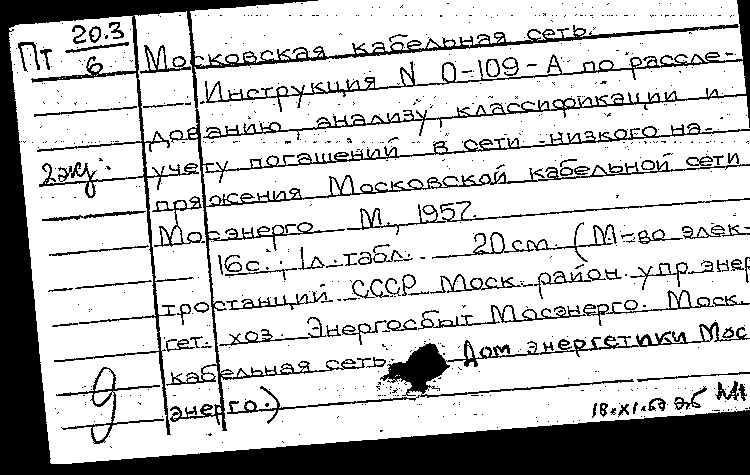 Пт 20.3/6
Московская кабельная сеть.
Инструкция N О-109-А по рассле-
дованию, анализу, классификации и
учету погашений в сети низкого на-
2экз.
пряжения Московской кабельной сети
Мосэнерго. М., 1957.
16с.; 1л.табл. 20см. (М-во элек-
тростанций СССР Моск. район. упр. энер
гет. хоз. Энергосбыт Мосэнерго. Моск.
кабельная сеть. Дом энергетики Мос
энерго.)